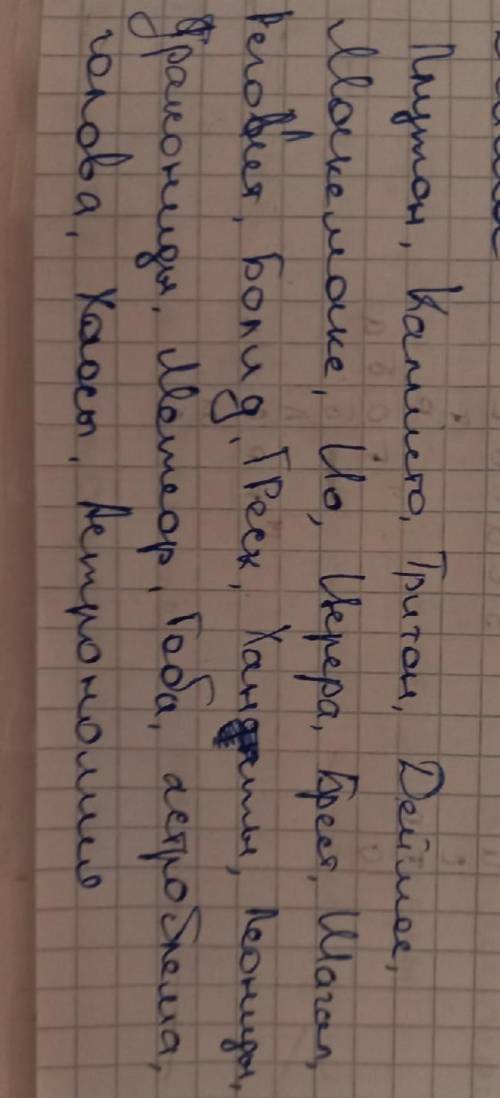 Плутон, Каллисто, Тритон, Деймос,
Макемаке, Ио, Церера, Брест, Шагал,
Реголит, Болид, Греск, Хондриты, Леониды,
Дракониды, Метеор, Гоба, астроблема,
голова, Хаосы, Астрономия